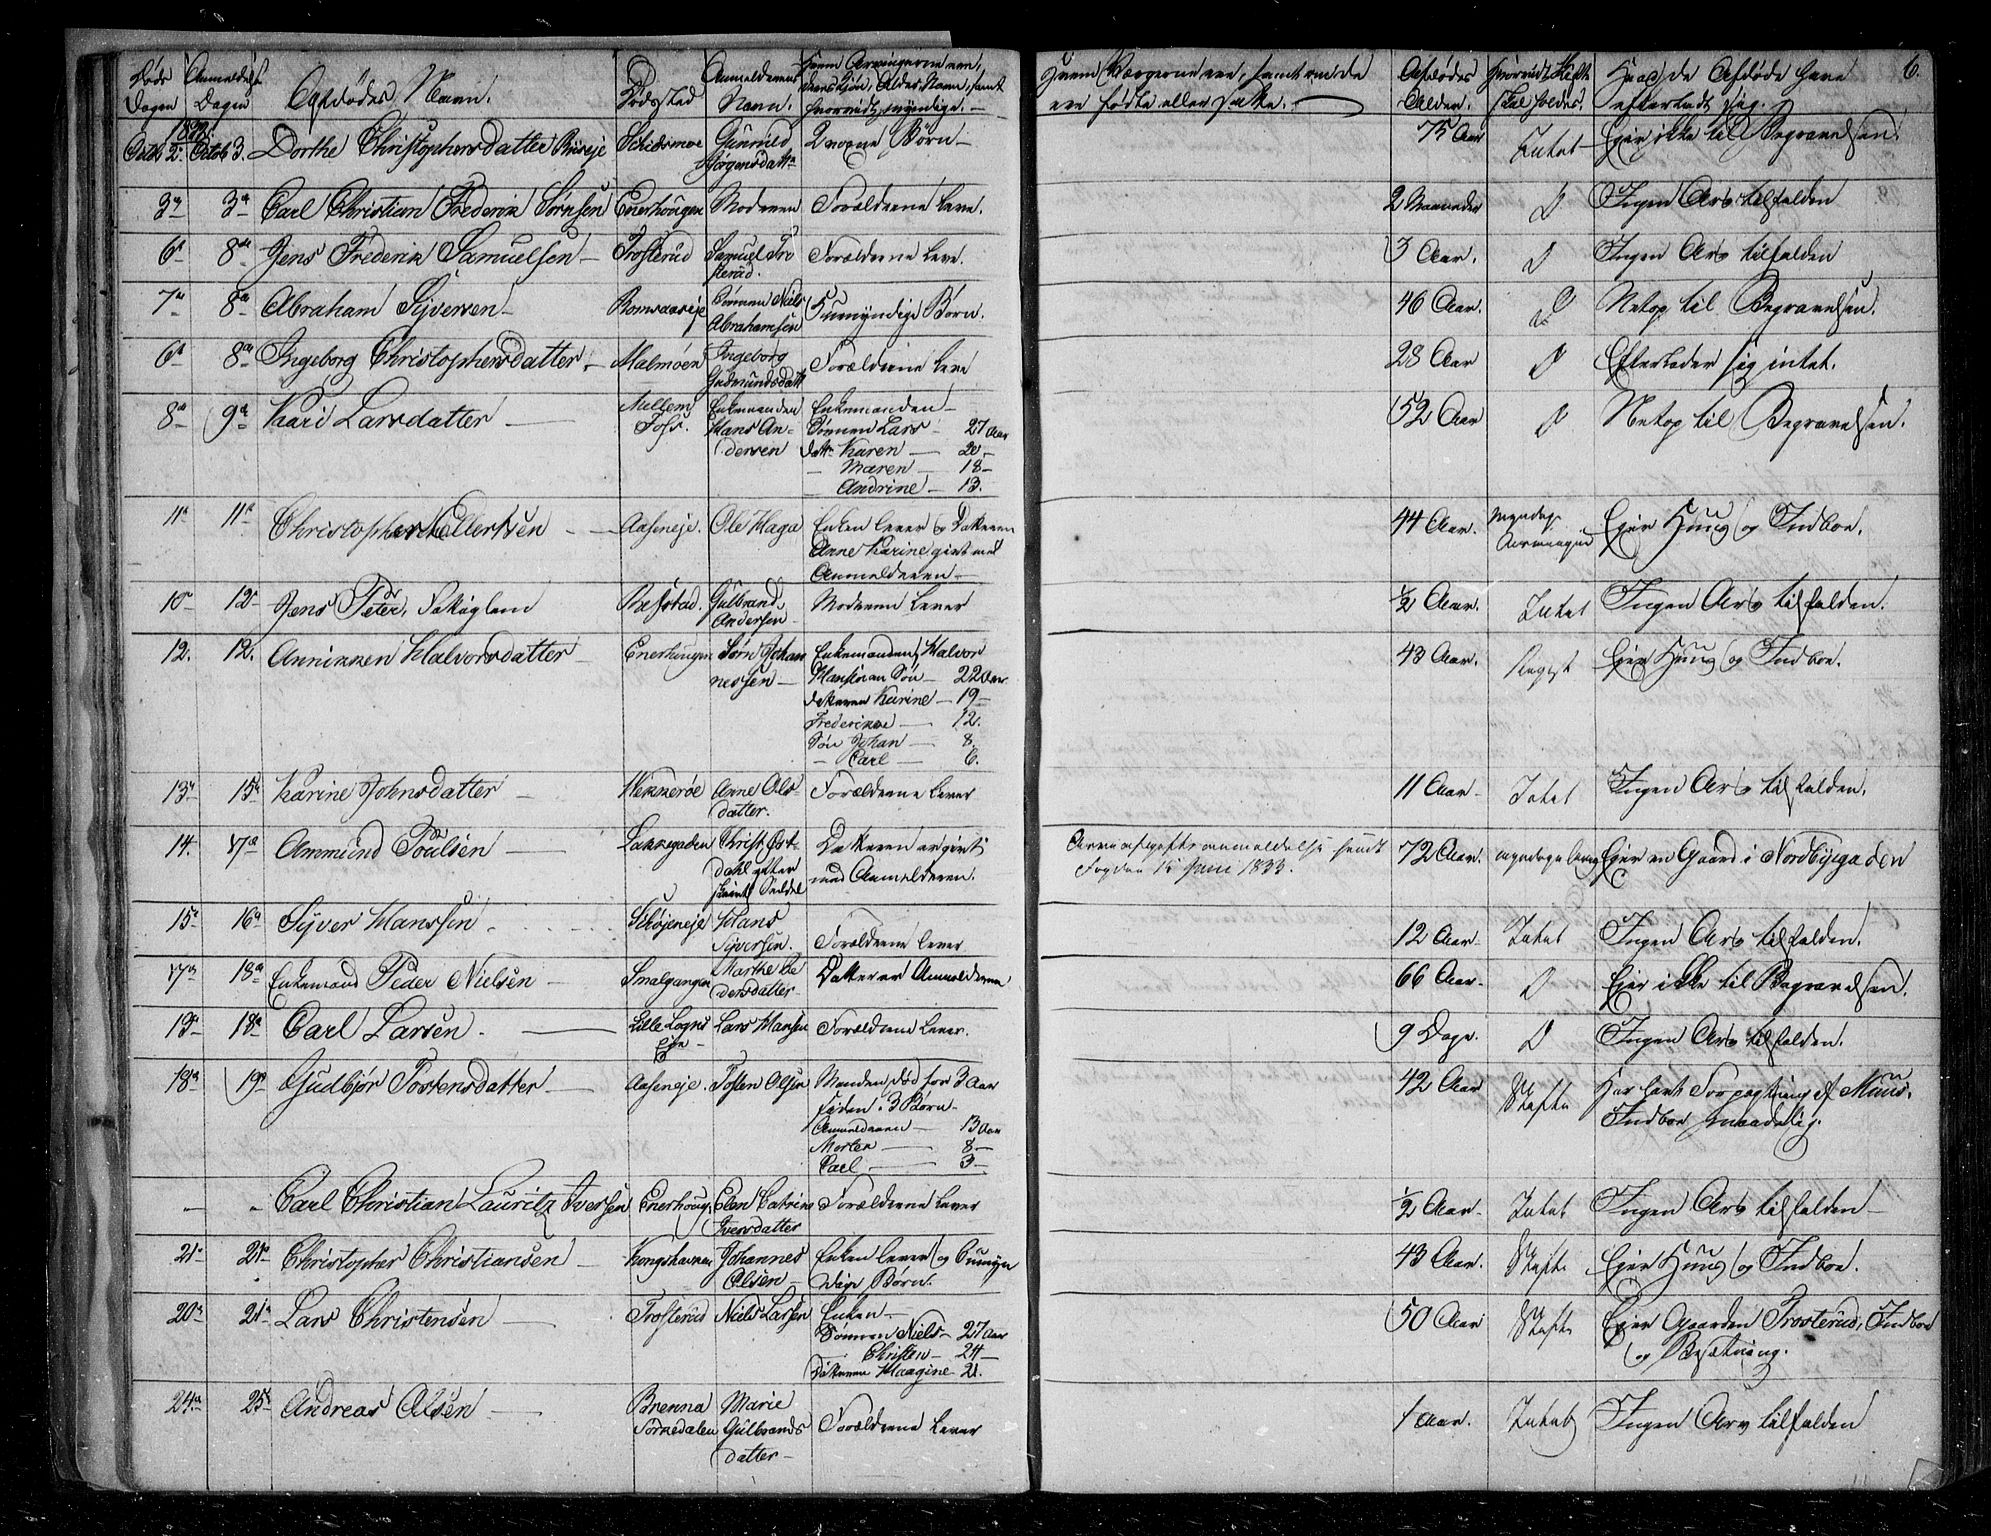 Döds Dagen | Anmeldelses Dagen | Afdødes Navn. | Dødssted | Anmelderens Navn. | Hvem Arvingerne ere, deres Kjøn, Alder, Navn, samt hvorvidt myndige. | Hvem Værgerne ere, samt om de ere fødte eller satte. | Afdødes Alder. | Hvorvidt Skifte skal holdes. | Hvad de Afdøde have efterladt sig. | 6.
Octb 2. | Octob 3. | Dorthe Christophersdatter Brueje | Schedsmoe | Gunnild Jørgensdattr | 2 Børn | 75 Aar | Intet | Ejer ikke til Begravelsen.
3die | 3die | Carl Christian Frederik Sørnsen | Enerhougen | Moderen | Forældrene leve. | 2 Maaneder | D | Ingen Arv tilfalden
6te | 8de | Jens Frederik Samuelsen | Trosterud | Samuel Trosterud. | Forældrene leve. | 3 Aar. | D | Ingen Arv tilfalden
7de | 8de | Abraham Syversen | | Sønnen Niels Abrahamsen | Umyndige Børn. | 46 Aar. | D | Netop til Begravelsen.
6te | 8de | Ingeborg Christophersdatter | Malmøen | Ingeborg Gudmundsdattr | Forældrene leve | 28 Aar | D | Efterlader sig intet.
8de | 9de | Kari Larsdatter | Mellem Foss. | Enkemanden Hans Andersen | Enkemanden
Sønnen Lars 27 Aar
Dattr Karen 20
Maren 18
Andrine 13. | 52 Aar | D | Netop til Begravelsen.
11te | 11te | Christopher Ellertsen | Aaseneje. | Ole Haga | Enken lever og Datteren Anne Karine givt med Anmelderen | 44 Aar. | Myndige Arvinger | Ejer Huus og Indboe.
10 | 12 | Jens Peter, Fakkglem | Refstad | Gulbrand Andersen | Moderen lever | 1/2 Aar. | Intet | Ingen Arv tilfalden.
12. | 12. | Annikken Halvorsdatter | Enerhaugen | Sørn Johannessen | Enkemanden, Halvor
Hansen en Søn 22 Aar.
Datteren Karine 19
Frederikke 12.
Søn Johan 8
Carl 6. | 43 Aar. | Regist | Ejer Huus og Indboe.
13de | 15de | Karine Johnsdatter | Hekkerøe | Anne Olsdatter. | Forældrene lever | 11 Aar | Intet | Ingen Arv tilfalden.
14. | 17de | Ammund Poulsen | Lakkegaden | Christ. Østdahl efter Seddel | Datteren er givt med Anmelderen. | Arveafgiftsanmeldelse sendt Fogden 15 Juni 1833. | 72 Aar. | myndige | Ejer en Gaard i Nordbygaden
15de | 16de | Syver Hanssen | Schøjeneje | Hans Syversen. | Forældrene lever | 12 Aar | Intet | Ingen Arv tilfalden.
17de | 18de | Enkemand Peder Nielsen | Smalgangen | Marthe Pedersdatter | Datter er Anmelderen | 66 Aar. | D | Ejer ikke til Begravelsen.
13de | 18de | Carl Larsen. | Lille Eje | Lars Hansen | Forældrene lever. | 9 Dage. | D | Ingen Arv tilfalden.
18de | 19de | Gudbjør Tostensdatter | Aaseneje. | Tosten Olsen | Manden død for 3 Aar siden. 3 Børn
Anmelderen 13 Aar
Morten 8
Carl 3 | 42 Aar | Skifte | Har havt Forpagtning af Huus. Indboe maadelig.
Carl Christian Lauritz Iversen | Enerhoug. | Elen Catrine Iversdatter | Forældrene lever | 1/2 Aar. | Intet | Ingen Arv tilfalden
21de | 21de | Christopher Christiansen | Kongshavnen | Johannes Olsen | Enken lever og 6 umyndige Børn. | 43 Aar. | Skifte | Ejer Huus og Indboe.
20de | 21de | Lars Christensen | Trosterud | Niels Larsen | Enken
Sønnen Niels 27 Aar
Christen 24
Datteren Maagine 21. | 50 Aar | Skifte | Ejer Gaarden Trosterud, Indboe og Besætning.
24de | 25de | Andreas Olsen | Brenna Sørkedalen | Marie Gulbrandsdatter | Forældrene lever | 1 Aar. | Intet | Ingen Arv tilfalden